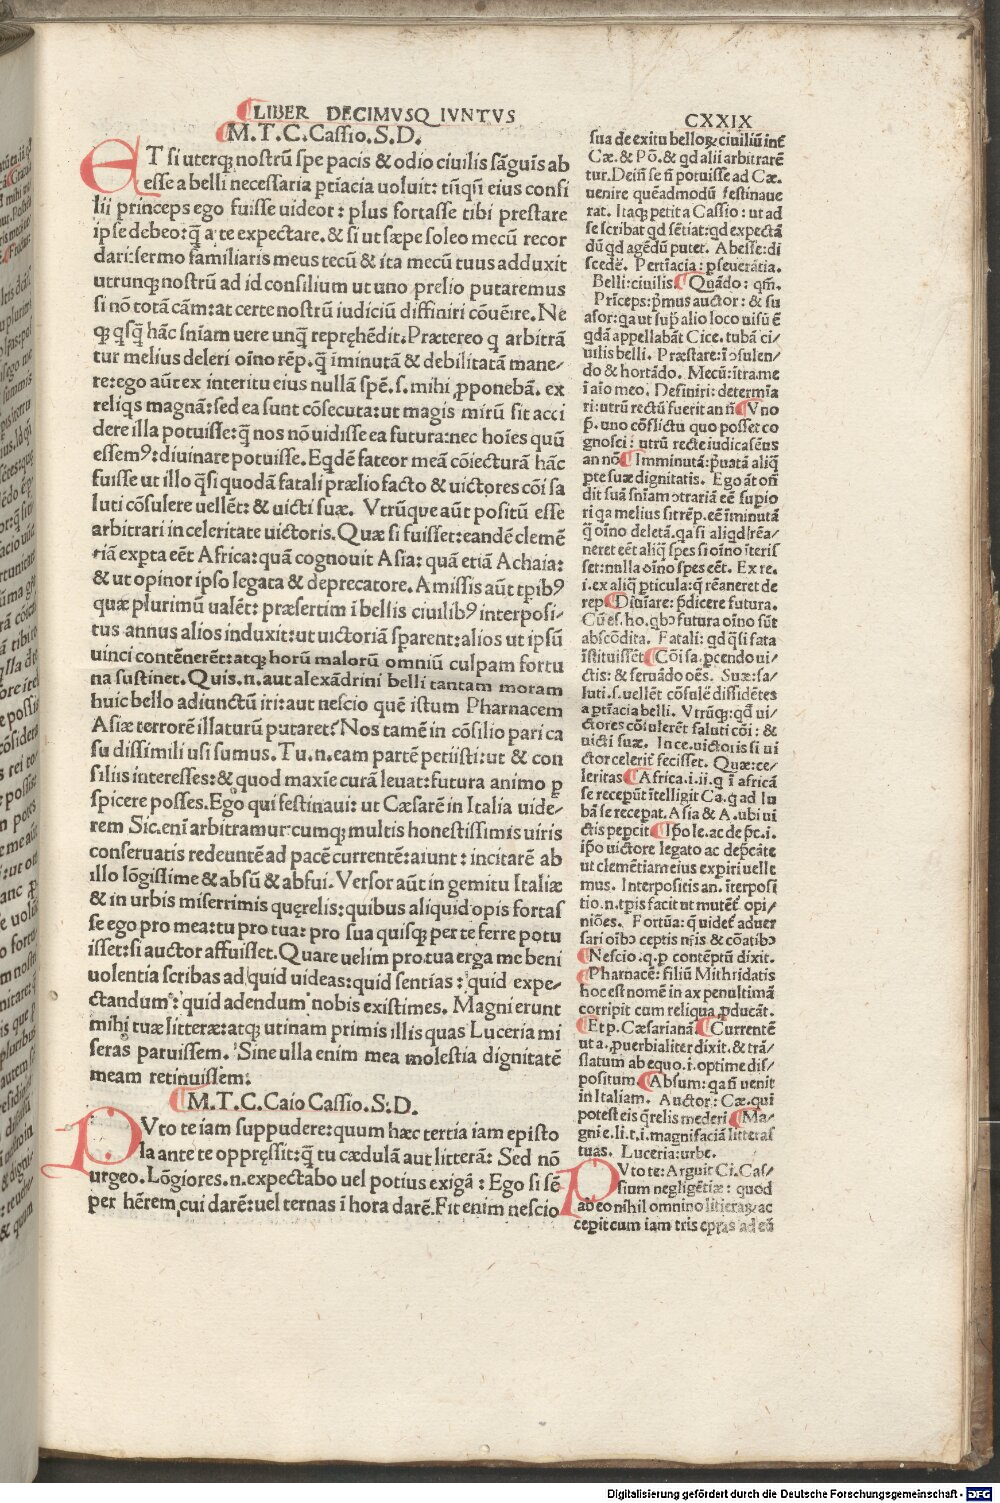 LIBER DECIMVSQ IVNTVS
CXXIX
M.T.C.Cassio.S.D.
ET si uterq; nostrũ spe pacis & odio ciuilis sãguis ab
esse a belli necessaria ptĩacia uoluit: tñ qñ eius consi
lii princeps ego fuisse uideor: plus fortasse tibi prestare
ipse debeo: q̃ a te expectare. & si ut sæpe soleo mecũ recor
dari: sermo familiaris meus tecũ & ita mecũ tuus adduxit
utrunq; nostrũ ad id consilium ut uno prelio putaremus
si nõ totã cãm: at certe nostrũ iudiciũ diffiniri cõuẽire. Ne
q; q̃sq̃ hãc sniam uere unq̃ repręhẽdit. Prætereo q arbitrã
tur melius deleri oĩno rẽp. q̃ iminutã & debilitatã mane/
re: ego aũt ex interitu eius nullã spẽ. s. mihi ꝓponebã. ex
reliqs magnã: sed ea sunt cõsecuta: ut magis mirũ sit acci
dere illa potuisse: q̃ nos nõ uidisse ea futura: nec hoĩes quũ
essemꝰ: diuinare potuisse. Eqdẽ fateor meã cõiecturã hãc
fuisse ut illo q̃si quodã fatali prælio facto & uictores cõi sa
luti cõsulere uellẽt: & uicti suæ. Vtrũque aũt positũ esse
arbitrari in celeritate uictoris. Quæ si fuisset: eandẽ clemẽ
tiã expta eẽt Africa: quã cognouit Asia: quã etiã Achaia:
& ut opinor ipso legata & deprecatore. Amissis aũt tpibꝰ
quæ plurimũ ualẽt: præsertim ĩ bellis ciuilibꝰ interposi/
tus annus alios induxit: ut uictoriã sparent: alios ut ipsũ
uinci contẽnerẽt: atq; horũ malorũ omniũ culpam fortu
na sustinet. Quis. n. aut alexãdrini belli tantam moram
huic bello adiunctũ iri: aut nescio quẽ istum Pharnacem
Asiæ terrorẽ illaturũ putaret? Nos tamẽ in cõsilio pari ca
su dissimili usi sumus. Tu. n. eam partẽ petiisti: ut & con
siliis interesses: & quod maxĩe curã leuat: futura animo ꝑ
spicere posses. Ego qui festinaui: ut Cæsarẽ in Italia uide/
rem Sic. enĩ arbitramur: eumq; multis honestissimis uiris
conseruatis redeuntẽ ad pacẽ currentẽ: aiunt: incitarẽ ab
illo lõgissime & absũ & abfui. Versor aũt in gemitu Italiæ
& in urbis miserrimis quęrelis: quibus aliquid opis fortas
se ego pro mea: tu pro tua: pro sua quisq; per te ferre potu
isset: si auctor affuisset. Quare uelim pro tua erga me beni
uolentia scribas ad quid uideas: quid sentias: quid expe/
ctandum: quid adendum nobis existimes. Magni erunt
mihi tuæ litteræ: atq; utinam primis illis quas Luceria mi
seras paruissem. Sine ulla enim mea molestia dignitatẽ
meam retinuissem.
M.T.C.Caio Cassio.S.D.
PVto te iam suppudere: quum hæc tertia iam episto
la ante te oppręssit: q̃ tu cædulã aut litterã: Sed nõ
urgeo. Lõgiores. n. expectabo uel potius exigã: Ego si sẽ
per hẽrem cui darẽ: uel ternas ĩ hora darẽ. Fit enim nescio
sua de exitu belloꝝ ciuiliũ int̃
Cæ. & Põ. & qd alii arbitrarẽ
tur. Deiñ se ñ potuisse ad Cæ.
uenire quẽadmodũ festinaue
rat. Itaq; petit a Cassio: ut ad
se scribat qd sẽtiat: qd expectã
dũ qd agẽdũ putet. Abesse: di
scedẽ. Pertĩacia: pseuerãtia.
Belli: ciuilis. Quãdo: qm̃.
Prĩceps: p̃mus auctor: & su
asor: qa ut sup̃ alio loco uisũ ẽ
qdã appellabãt Cice. tubã ci/
uilis belli. Præstare: ĩ ɔsulen/
do & hortãdo. Mecũ: ĩtra me
ĩ aĩo meo. Definiri: determĩa
ri: utrũ rectũ fuerit an ñ. Vno
p̃. uno cõflictu quo posset co
gnosci: utrũ recte iudicasẽus
an nõ. Imminutã: p̃uatã aliq̃
pte suæ dignitatis. Ego ãt oñ
dit suã sniam ɔtrariã eẽ supio
ri qa melius sit rẽp. eẽ ĩminutã
q̃ oĩno deletã. qa si aliqd rẽa/
neret eẽt aliq̃ spes si oĩno ĩteris
set: nulla oĩno spes eẽt. Ex re.
i. ex aliq̃ pticula: q̃ rẽaneret de
rep. Diuĩare: p̃dicere futura.
Cũ es. ho. qbɔ futura oĩno sũt
abscõdita. Fatali: qd q̃si fata
ĩstituissẽt. Cõi sa. pcendo ui/
ctis: & seruãdo oẽs. Suæ: sa/
luti. s. uellẽt cõsulẽ dissidẽtes
a ptĩacia belli. Vtrũq;: qđ ui/
ctores cõsulerẽt saluti cõi: &
uicti suæ. In ce. uictoris si ui
ctor celerit̃ fecisset. Quæ: ce/
leritas. Africa. i. ii. q ĩ africã
se recepũt ĩtelligit Ca. q ad Iu
bã se recepat. Asia & A. ubi ui
ctis pepcit. Ip̃o le. ac de p̃c. i.
ip̃o uictore legato ac dep̃cãte
ut clemẽtiam eius expiri uelle
mus. Interpositis an. ĩterposi
tio. n. tpis facit ut mutẽt̃ opi/
niões. Fortũa: q̃ uidet̃ aduer
sari oĩbɔ ceptis nr̃is & cõatibɔ
Nescio. q. p contẽptũ dixit.
Pharnacẽ: filiũ Mithridatis
hoc est nomẽ in ax penultimã
corripit cum reliqua pducãt.
Et p. Cæsarianã. Currentẽ
ut a. puerbialiter dixit. & trã/
slatum ab equo. i. optime dis/
positum. Absum: qa ñ uenit
in Italiam. Auctor: Cæ. qui
potest eis q̃relis mederi. Ma/
gni e. li. t. i. magni faciã litteras
tuas. Luceria: urbe.
PVto te: Arguit Ci. Cas/
sium negligẽtiæ: quod
ab eo nihil omnino litteraꝝ ac
cepit cum iam tris ep̃ras ad eũ
Digitalisierung gefördert durch die Deutsche Forschungsgemeinschaft - DFG